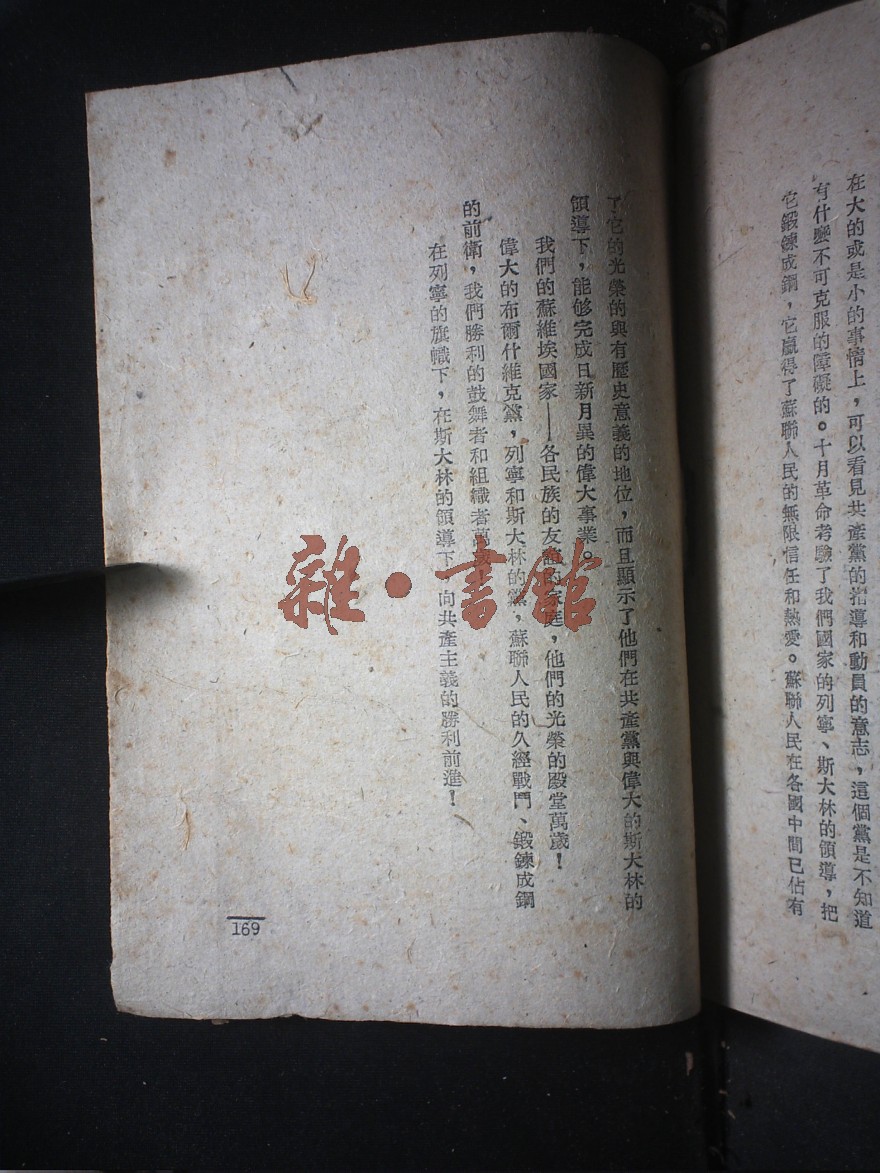 在大的或是小的事情上，可以看見共產黨的指導和動員的意志，這個黨是不知道
有什麼不可克服的障礙的。十月革命考驗了我們國家的列寧、斯大林的領導，把
它鍛鍊成鋼，它贏得了蘇聯人民的無限信任和熱愛。蘇聯人民在各國中間已佔有
了它的光榮的與有歷史意義的地位，而且顯示了他們在共產黨與偉大的斯大林的
領導下，能够完成日新月異的偉大事業。
我們的蘇維埃國家——各民族的友誼的家庭，他們的光榮的殿堂萬歲！
偉大的布爾什維克黨，列寧和斯大林的黨，蘇聯人民的久經戰鬥、鍛鍊成鋼
的前衛，我們勝利的鼓舞者和組織者萬歲！
在列寧的旗幟下，在斯大林的領導下，向共產主義的勝利前進！
169
雜·書館